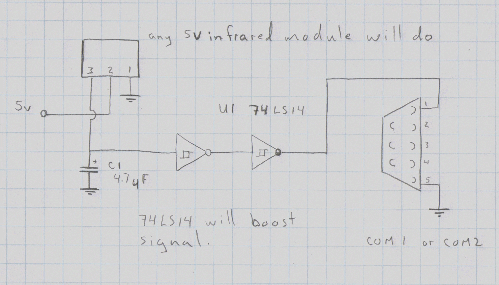 any 5v infrared module will do
3 2 1
5v
U1 74LS14
1
2
3
4
5
+
C1
4.7µF
74LS14 will boost
signal.
COM1 or COM2